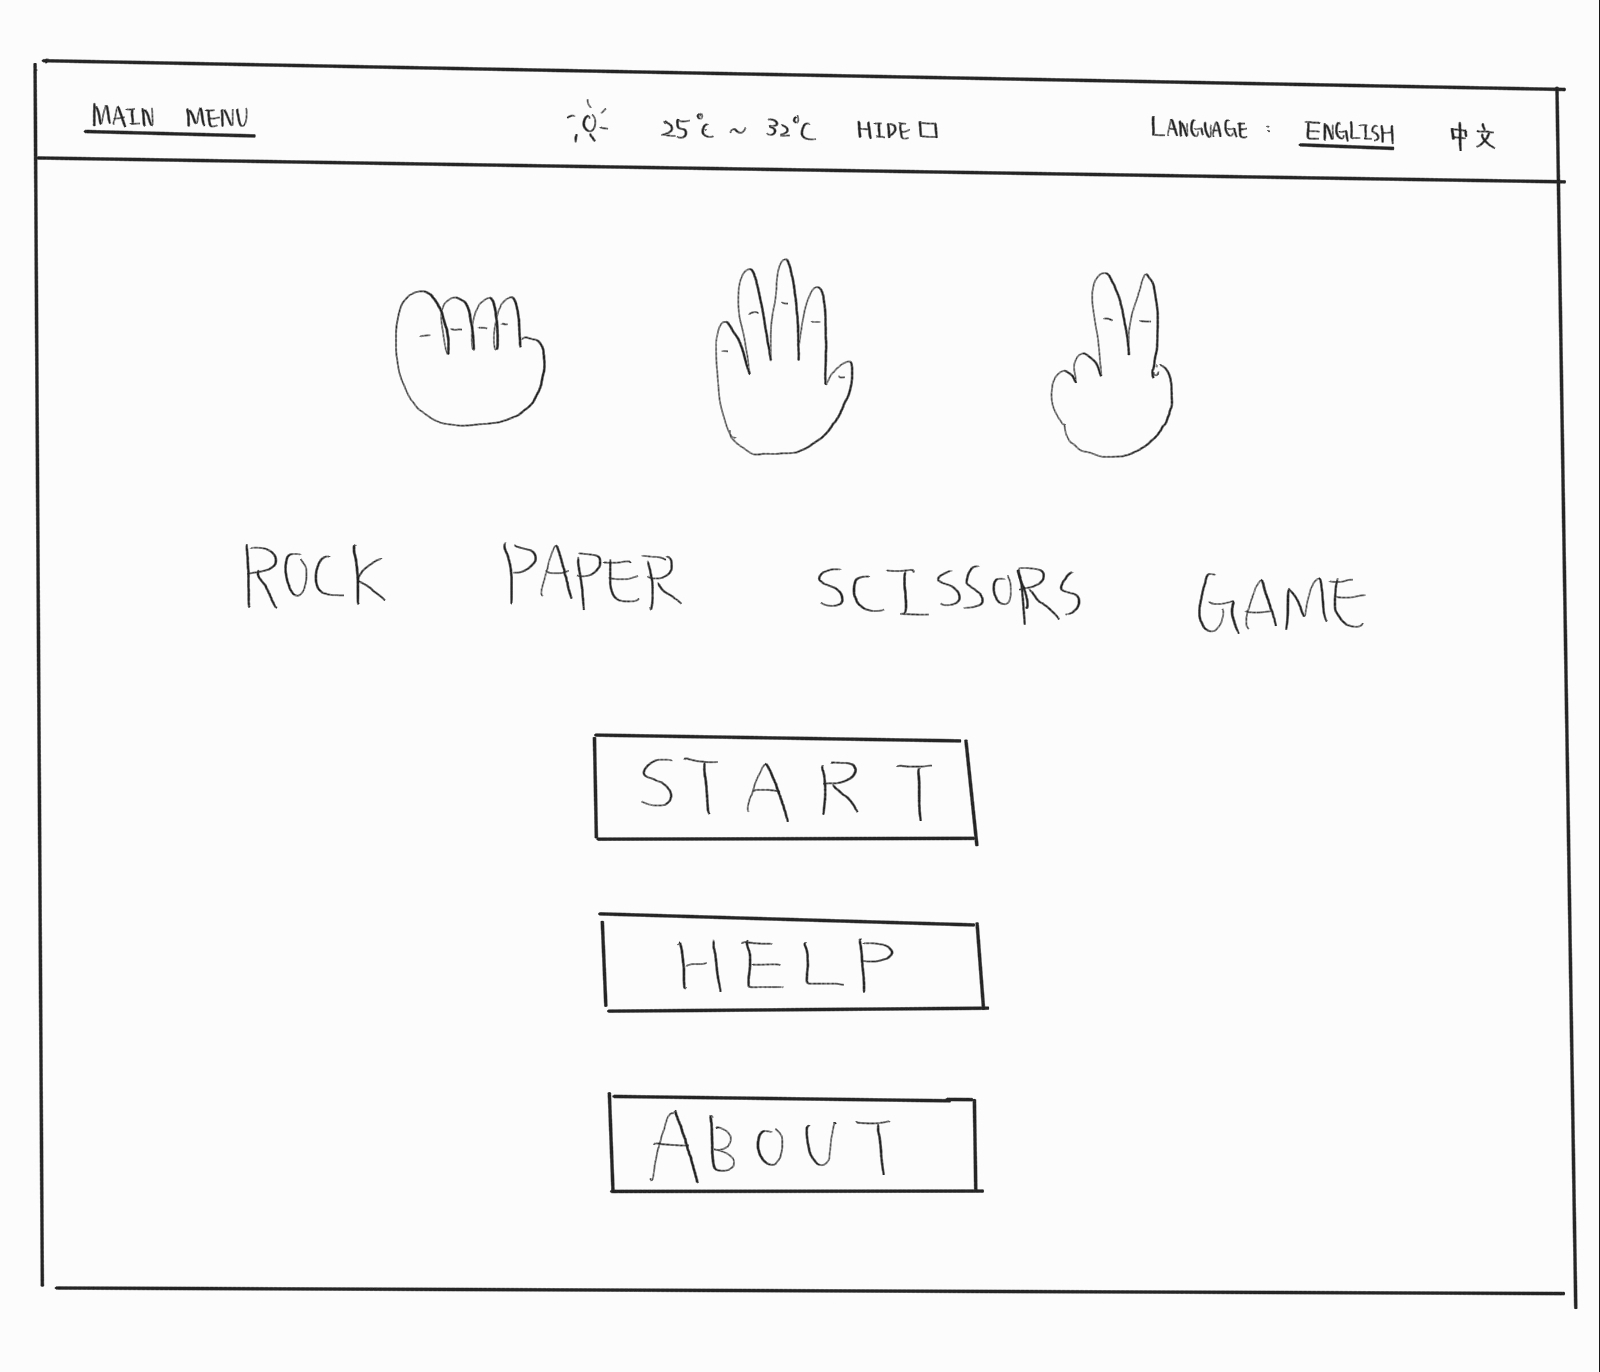 MAIN MENU 25°C ~ 32°C HIDE LANGUAGE : ENGLISH 中文
ROCK PAPER SCISSORS GAME
START
HELP
ABOUT